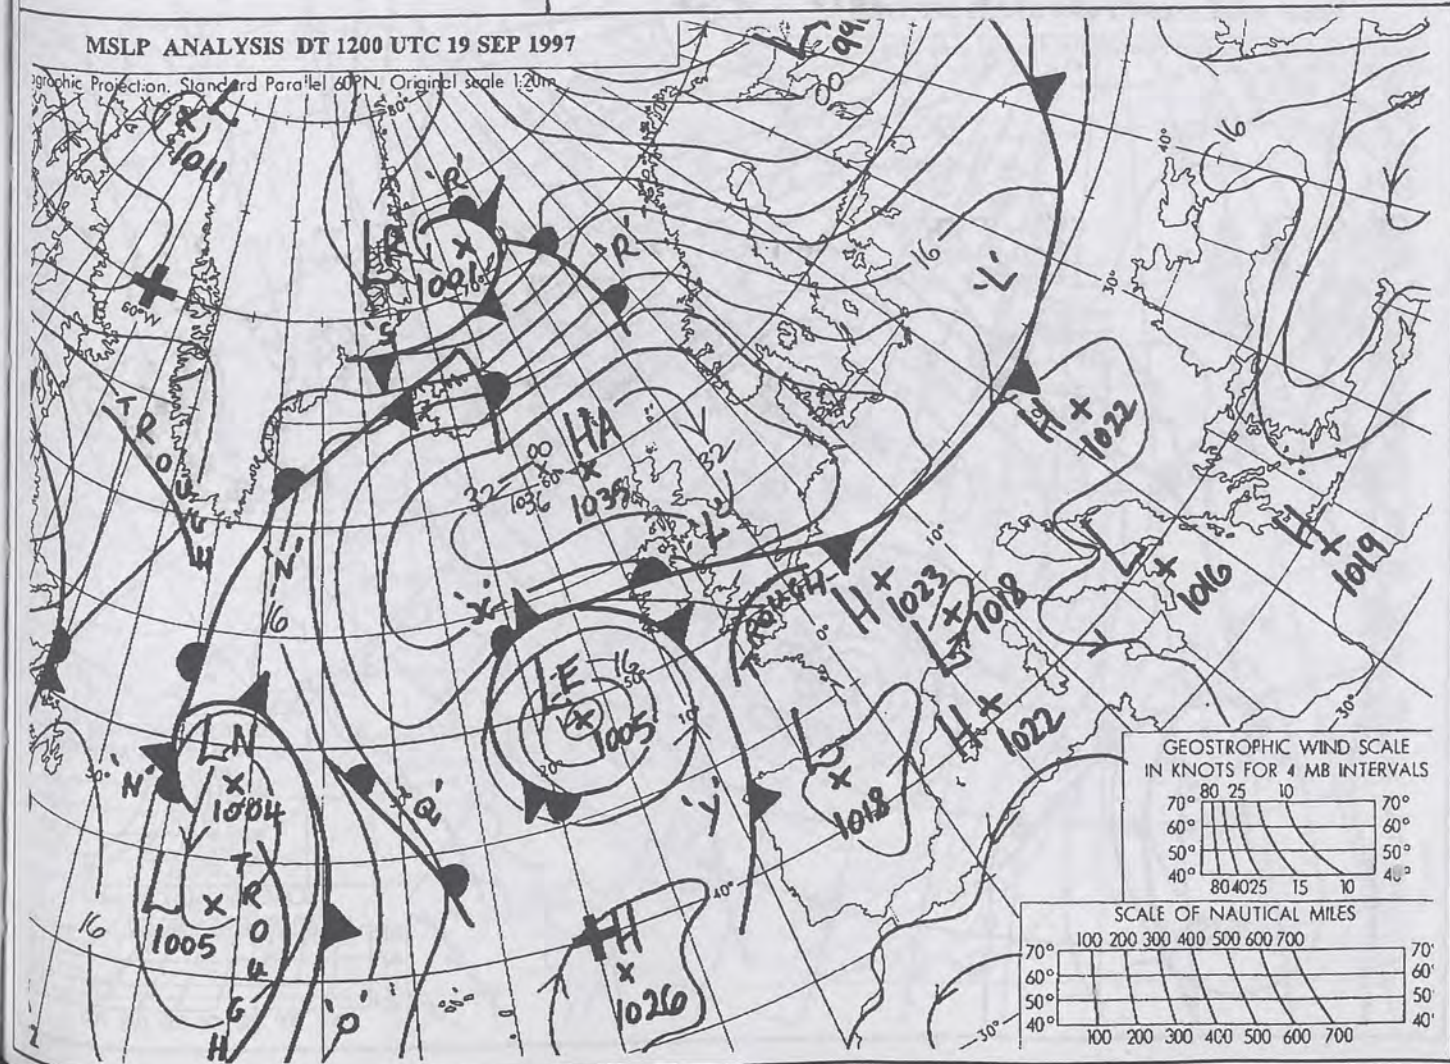 MSLP ANALYSIS DT 1200 UTC 19 SEP 1997
ographic Projection. Standard Parallel 60°N. Original scale 1:20m
L
1011
80°
L
00
16
40°
'R'
LR
1001
'R'
16
'L'
30°
60°W
'S'
H
1022
TROUGH
HA
1035
32
00
1036
60°
32
'L'
10°
H
1019
L
1016
'N'
16
'X'
H
1023
L
1018
0°
LE
16
50°
1005
10°
20°
H
1022
30°
LN
1004
'N'
'Q'
'Y'
L
1018
40°
16
L
1005
TROUGH
'P'
H
1026
30°
GEOSTROPHIC WIND SCALE
IN KNOTS FOR 4 MB INTERVALS
80 25 10
70° 70°
60° 60°
50° 50°
40° 40°
80 40 25 15 10
SCALE OF NAUTICAL MILES
100 200 300 400 500 600 700
70° 70°
60° 60°
50° 50°
40° 40°
100 200 300 400 500 600 700